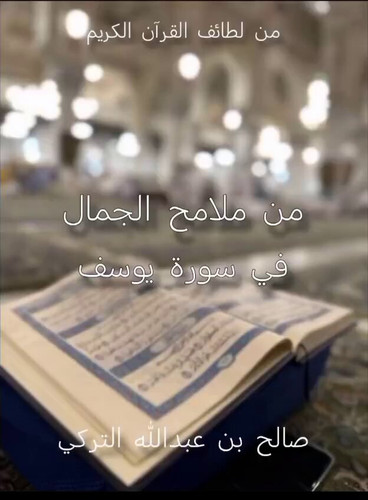 من لطائف القرآن الكريم
من ملامح الجمال
في سورة يوسف
صالح بن عبدالله التركي